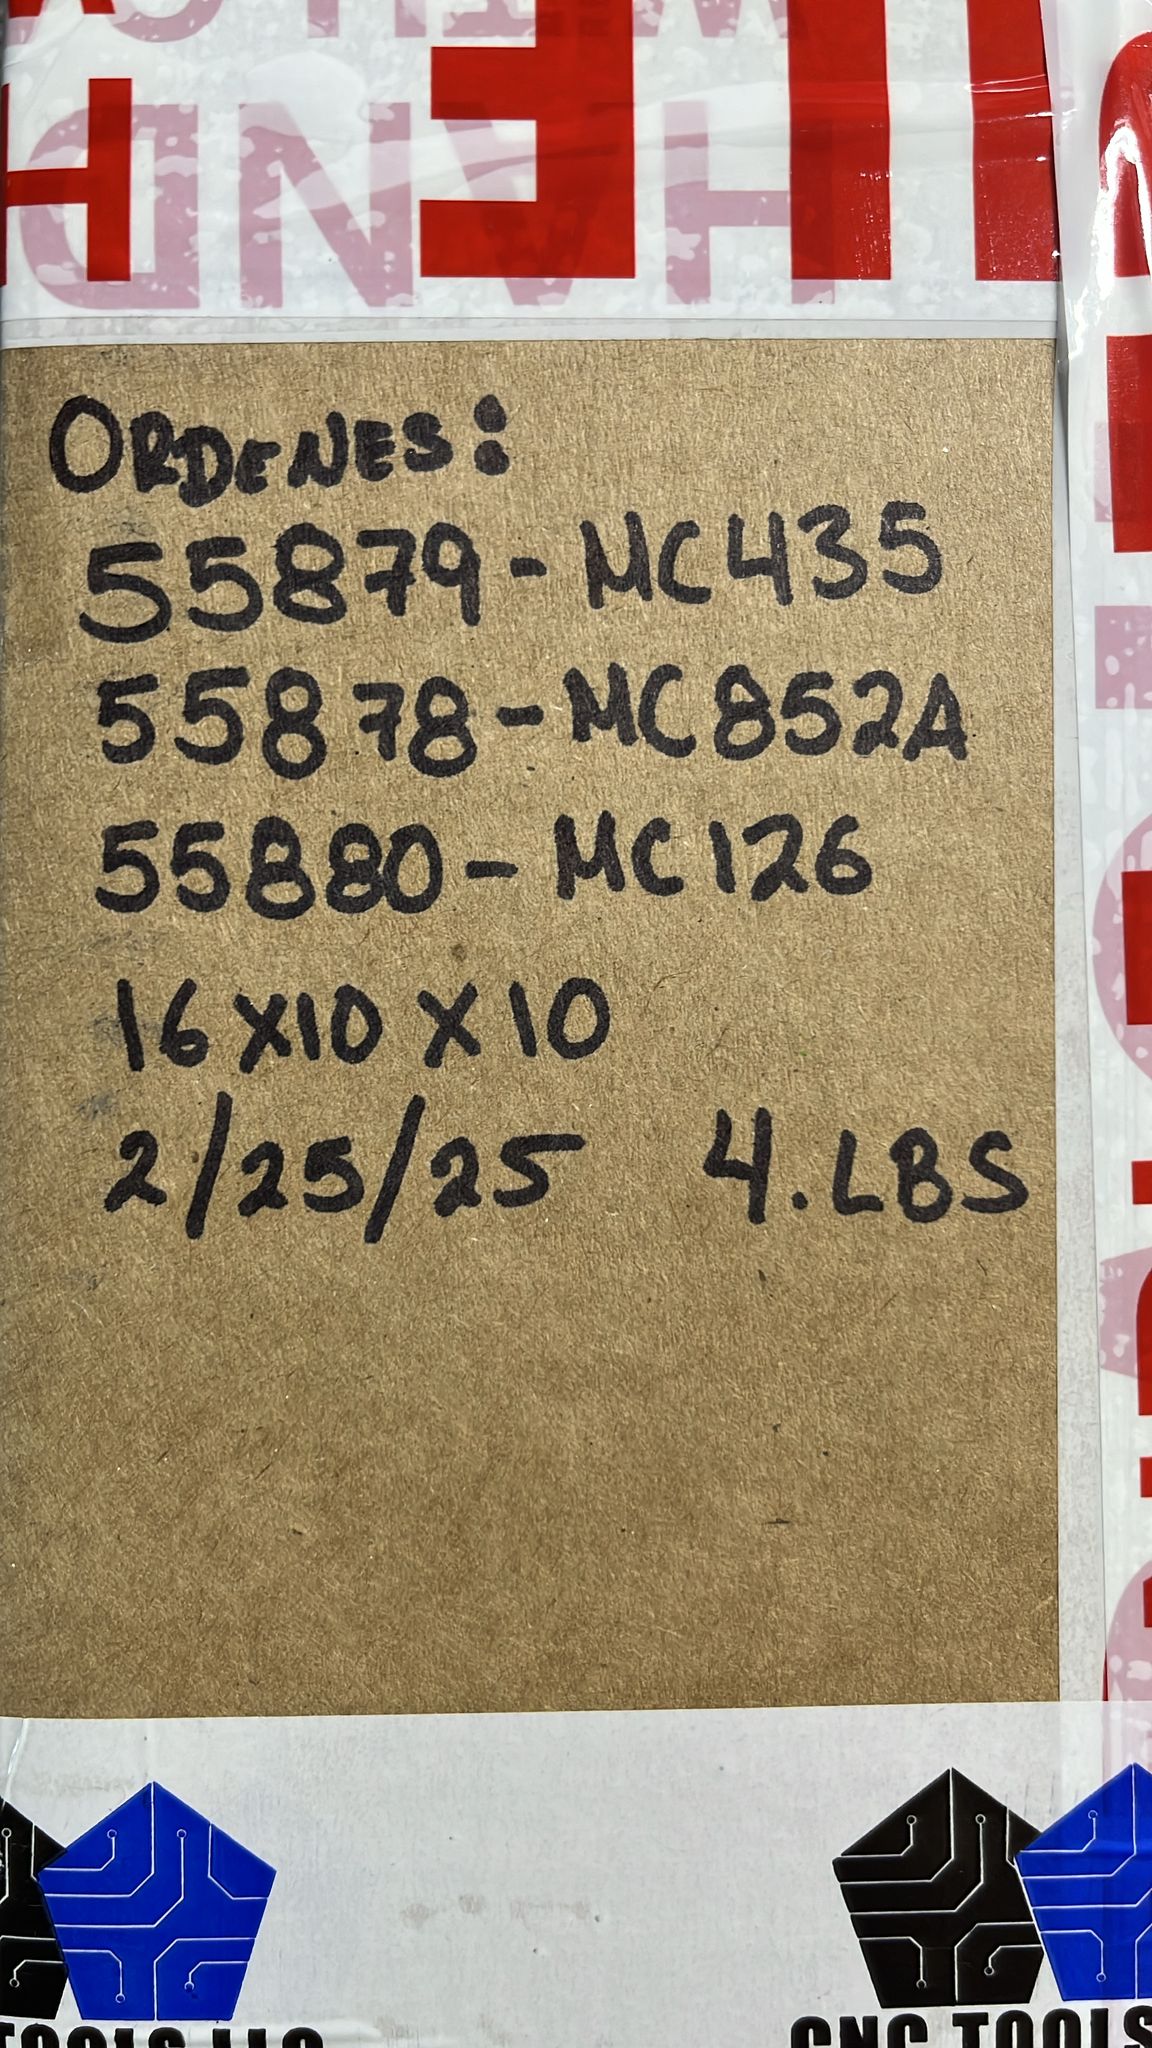 HAND
ORDENES:
55879-MC435
55878-MC852A
55880-MC126
16X10X10
2/25/25 4.LBS
TOOLS LLC
CNC TOOLS